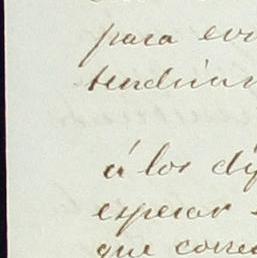 para evi
tendrian
á los dif
esperar
que corre